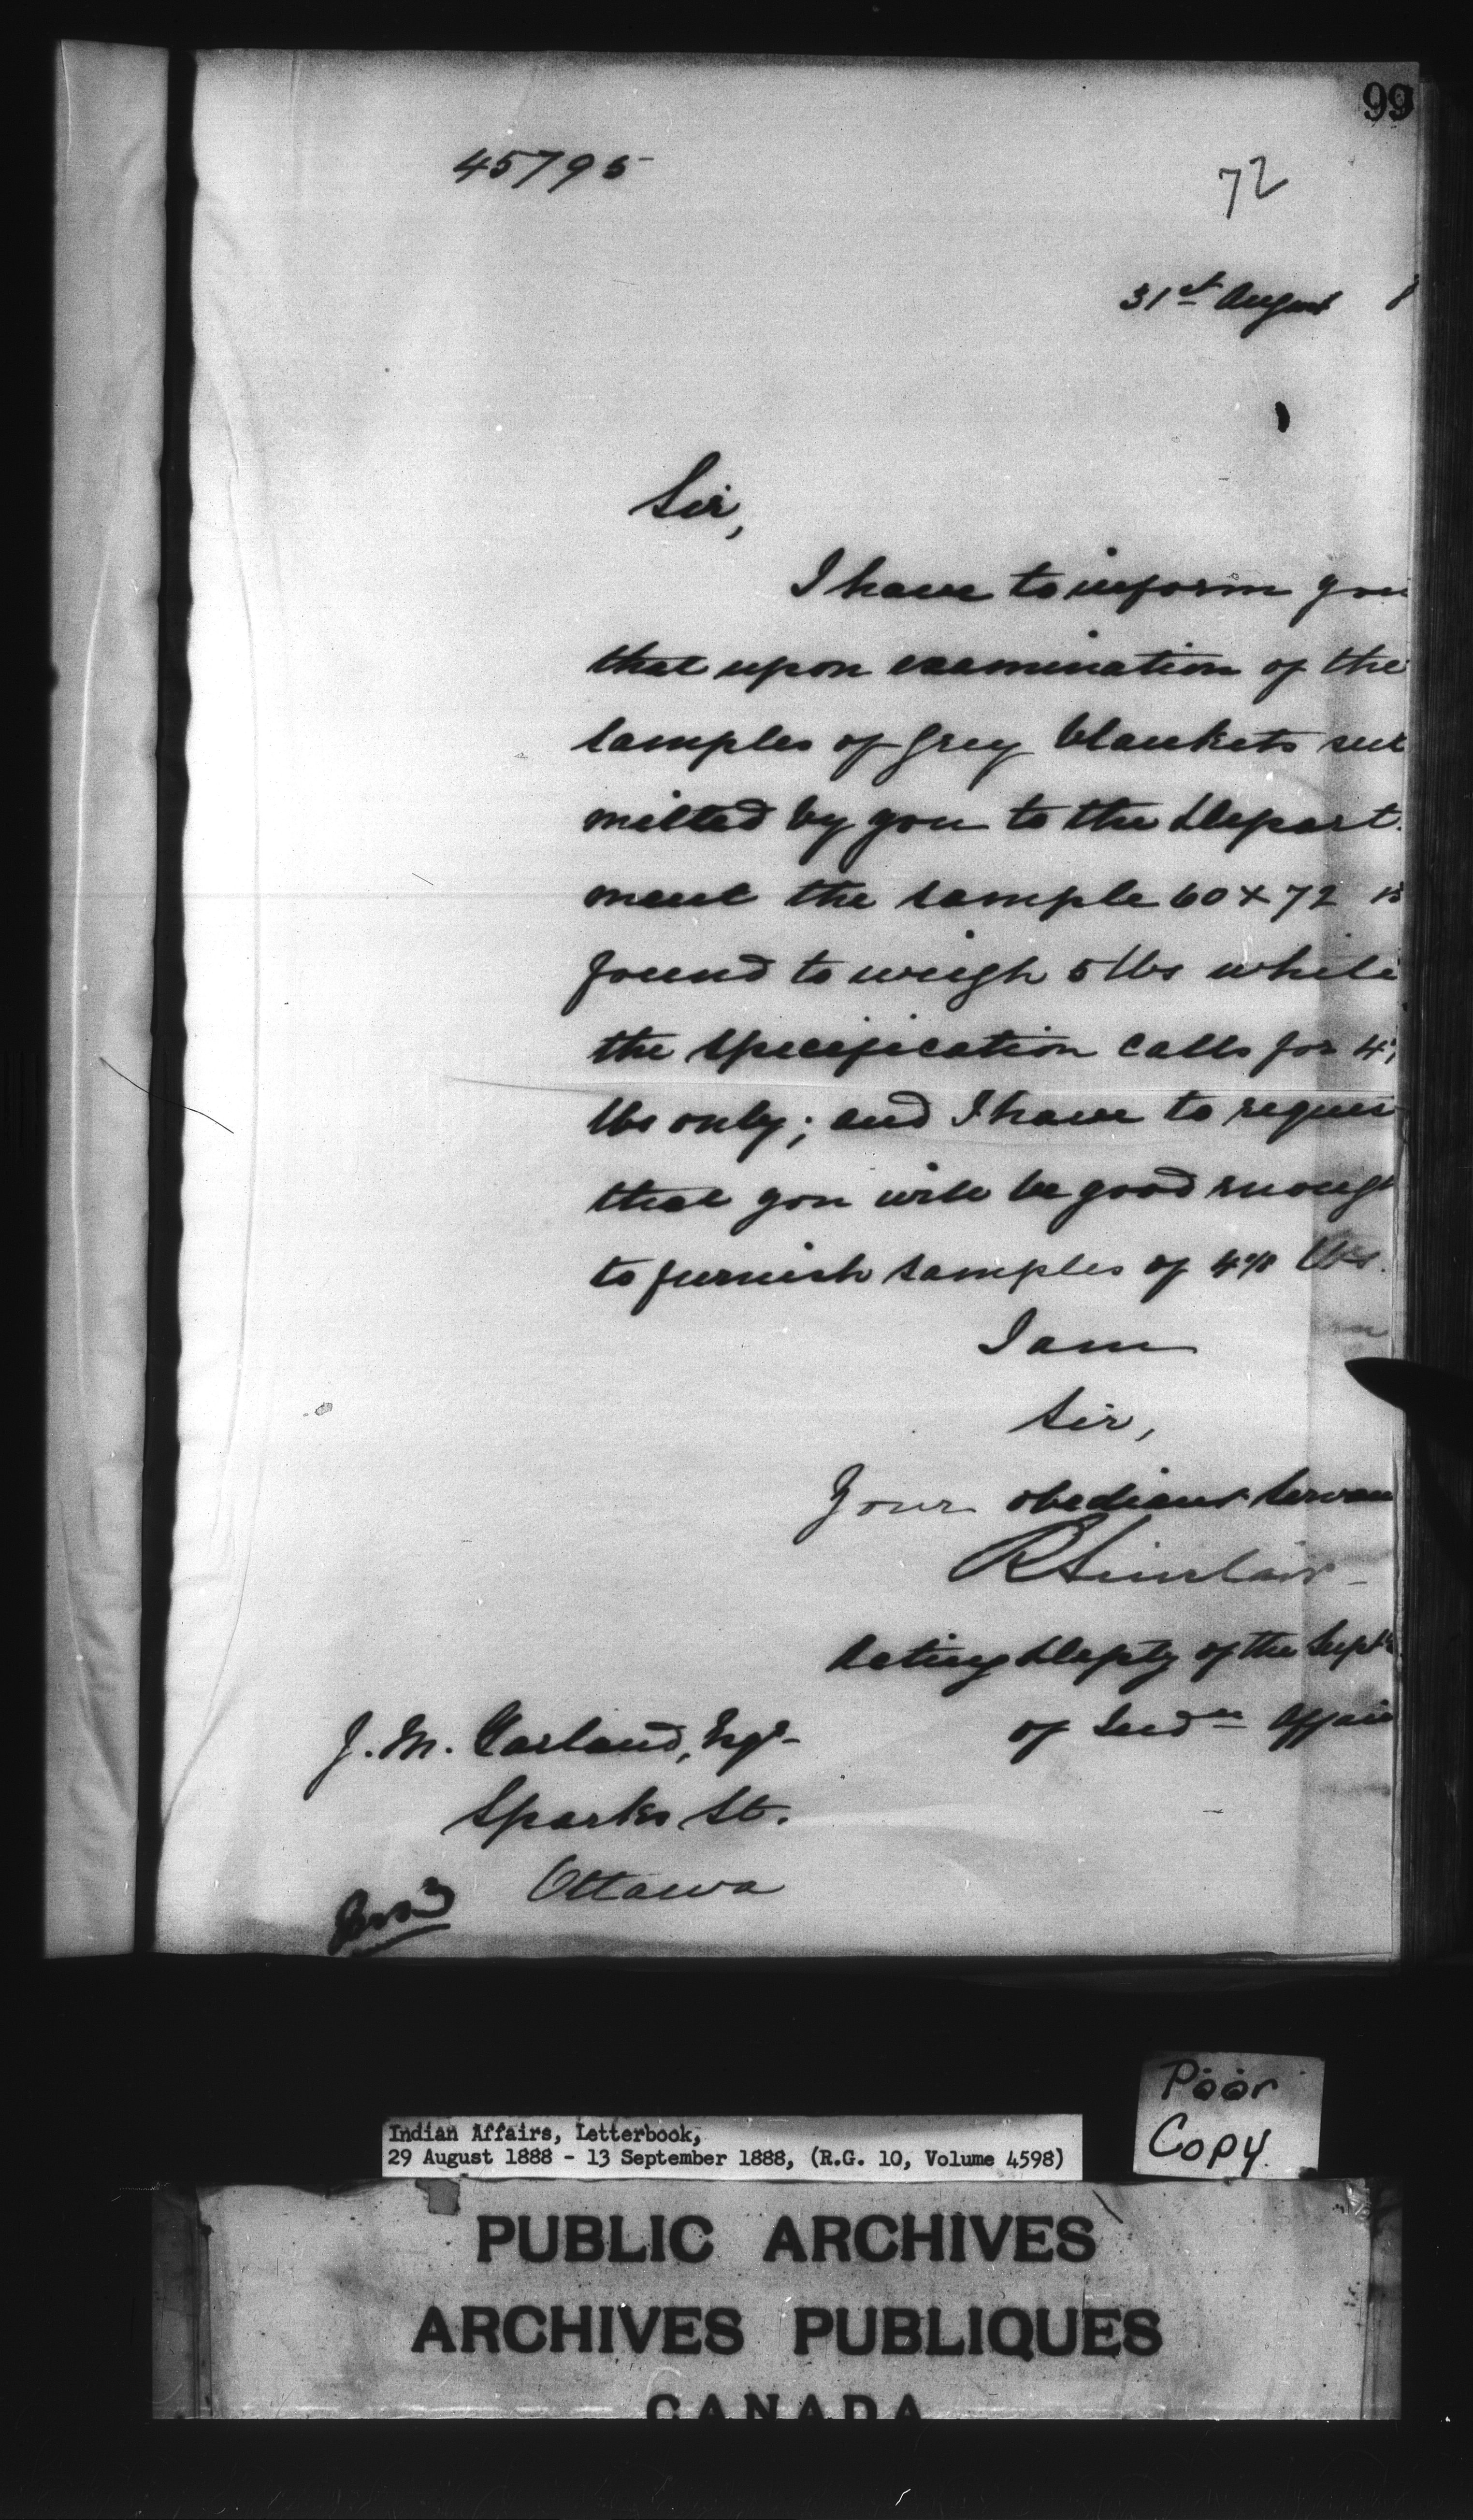 99
45795
72
31st August
Sir,
I have to inform you
that upon examination of the
samples of Grey blankets sub
mitted by you to the Depart.
ment the sample 60 x 72 is
found to weigh 5 lbs while
the specification calls for
lbs only; and I have to reques
that you will be good enough
to furnish samples of lbs.
I am
Sir,
Your obedient servan
R Sinclair
Acting Depty of the Supt
of Indn Affair
J. M. Garland, Esqr
Sparks St.
Ottawa
Poor
Copy.
Indian Affairs, Letterbook,
29 August 1888 - 13 September 1888, (R.G. 10, Volume 4598)
PUBLIC ARCHIVES
ARCHIVES PUBLIQUES
CANADA